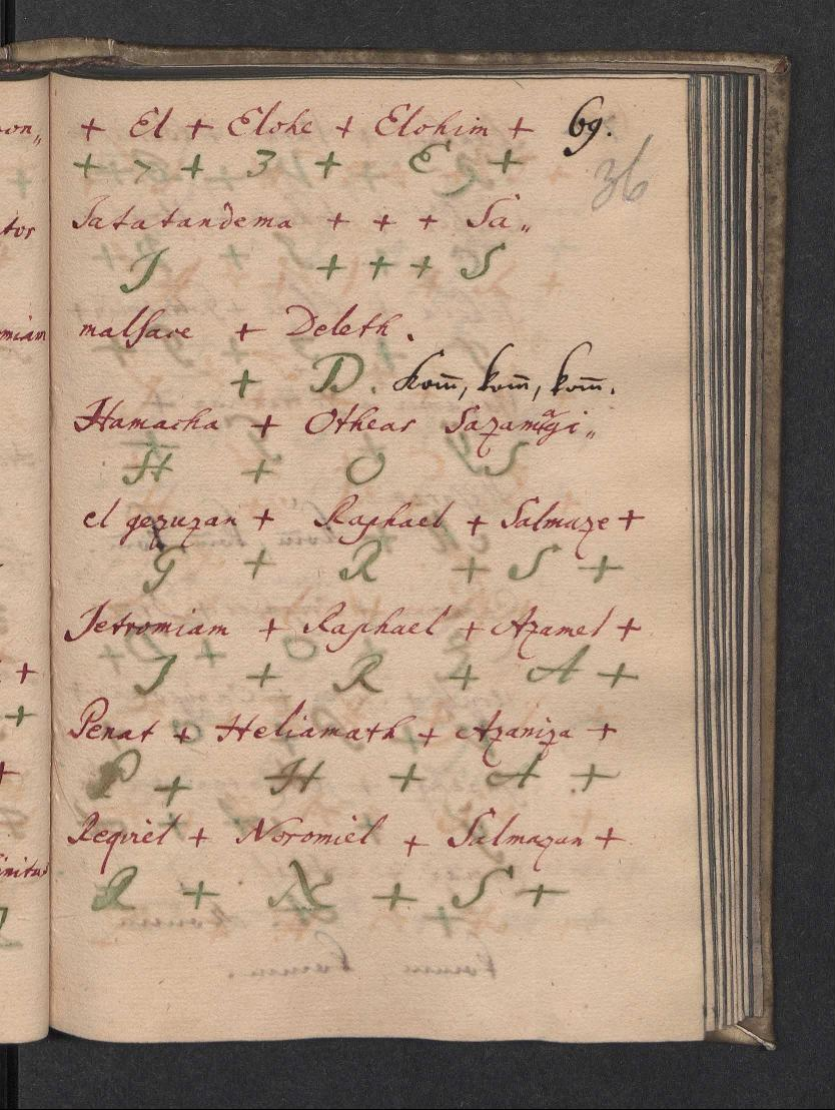 + El + Elohe + Elohim + 69.
+ 7 + 3 + E +
36
Jatatandema + + + Sa„
J + + + S
malsace + Deleth.
+ D. kom̅, kom̅, kom̅.
Hamacha + Othear
H + O S
el gezuzan + Raphael + Salmaze +
G + R + S +
Jetromiam + Raphael + Azamel +
J + R + A +
Penat + Heliamath + Azaniza +
P + H + A +
Reqviel + Noromiel + Salmazan +
R + N + S +